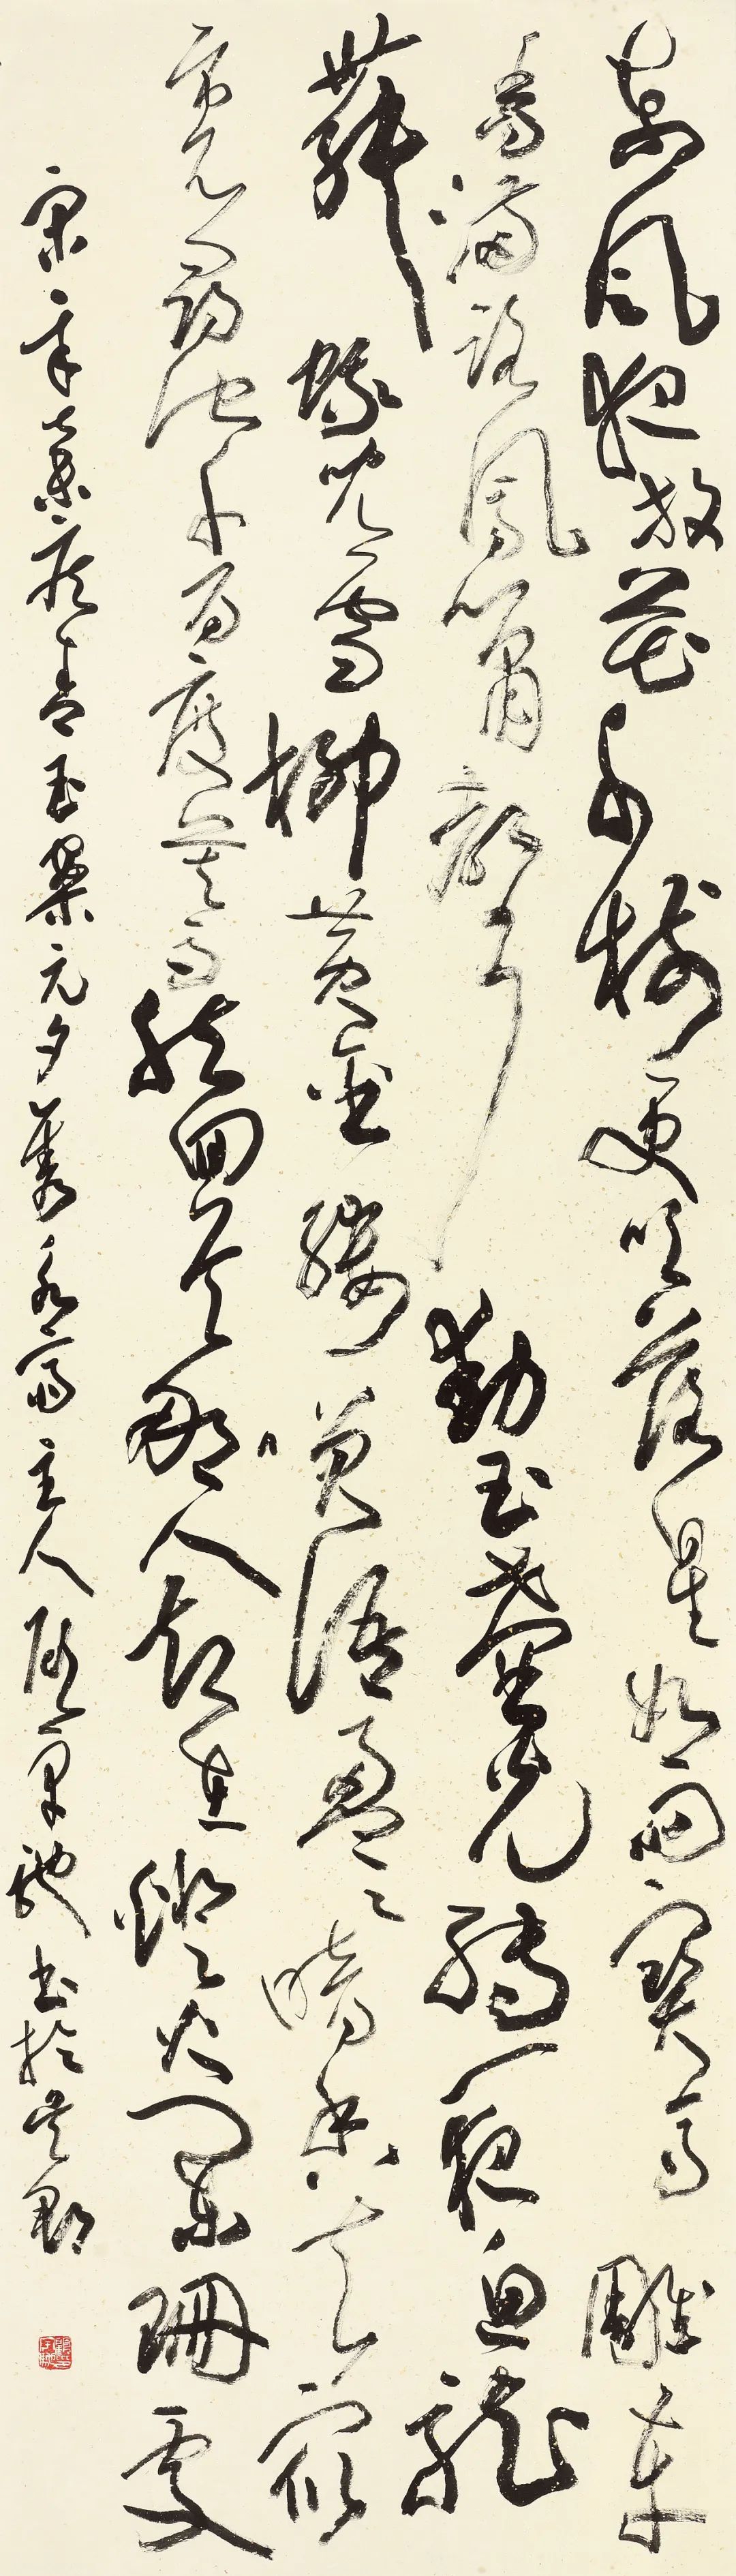 東風夜放花千樹更吹落星如雨寶馬雕車
香滿路鳳簫聲動玉壺光轉一夜魚龍
舞蛾兒雪柳黃金縷笑語盈盈暗香去眾
裏尋他千百度驀然回首那人卻在燈火闌珊處
宋辛棄疾青玉案元夕齋主人書於吳郡